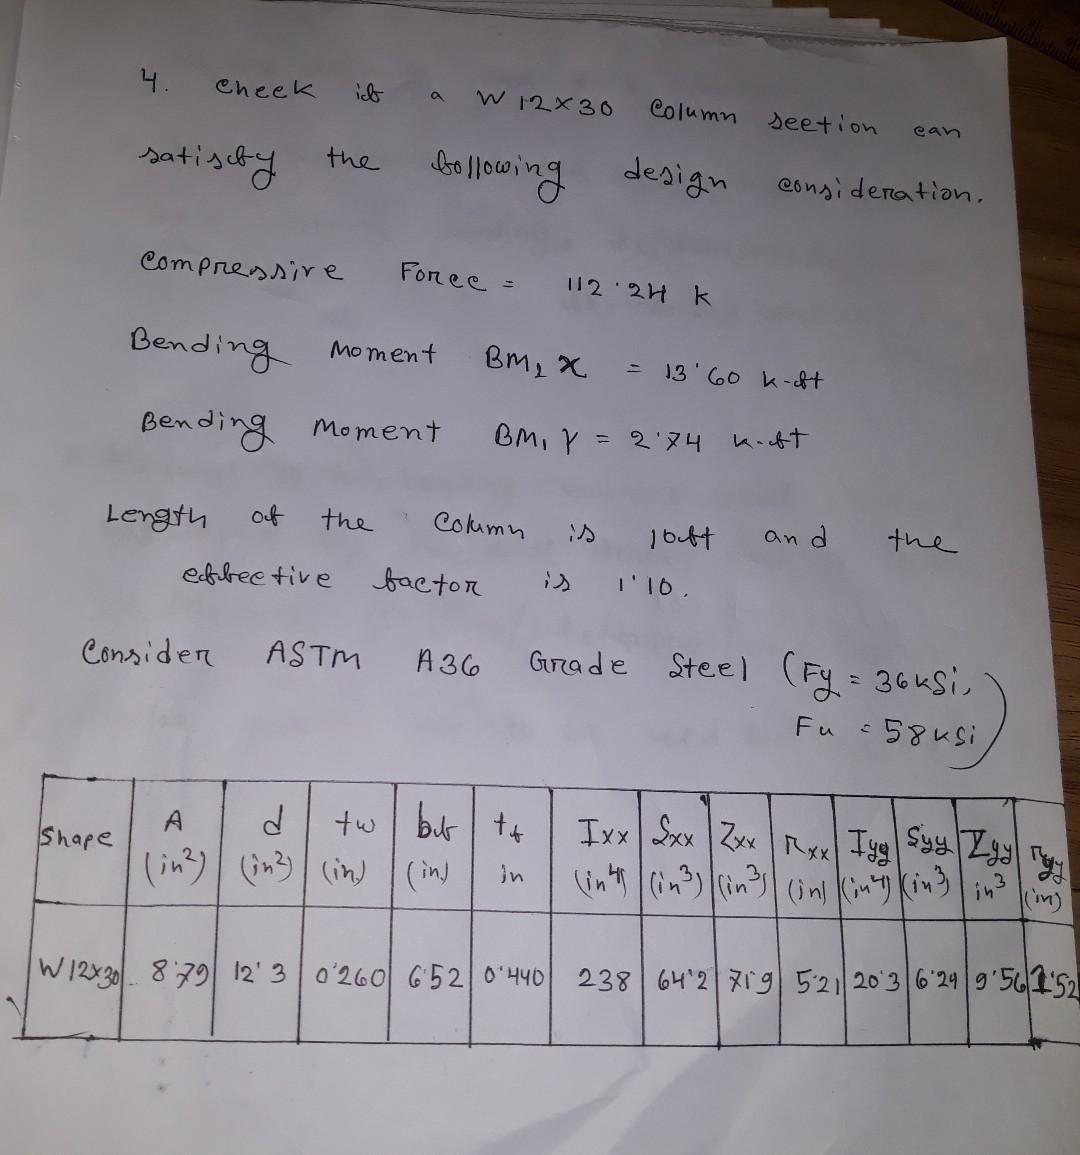 4. Check if a W 12x30 Column section can
satisfy the following design consideration.
Compressive Force = 112.24 k
Bending Moment BM2 X = 13.60 k-ft
Bending Moment BM1 Y = 2.74 k-ft
Length of the Column is 10ft and the
effective factor is 1.10.
Consider ASTM A36 Grade Steel (Fy = 36ksi,
Fu = 58ksi)
Shape A (in²) d (in²) tw (in) bf (in) tf in Ixx (in⁴) Sxx (in³) Zxx (in³) rxx (in) Iyy (in⁴) Syy (in³) Zyy in³ ryy (in)
W12x30 8.79 12.3 0.260 6.52 0.440 238 64.2 71.9 5.21 20.3 6.24 9.56 1.52